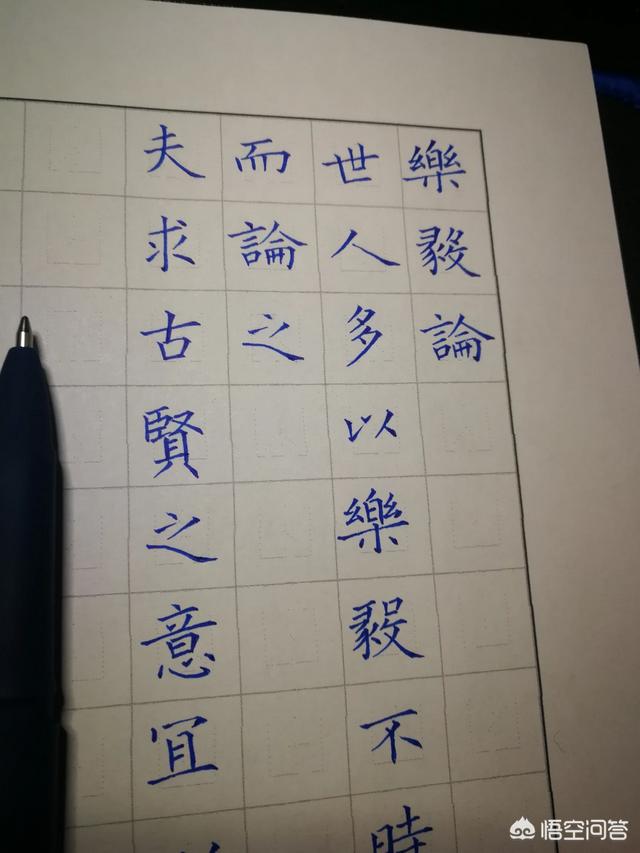 樂毅論
世人多以樂毅不時
而論之
夫求古賢之意宜
悟空问答